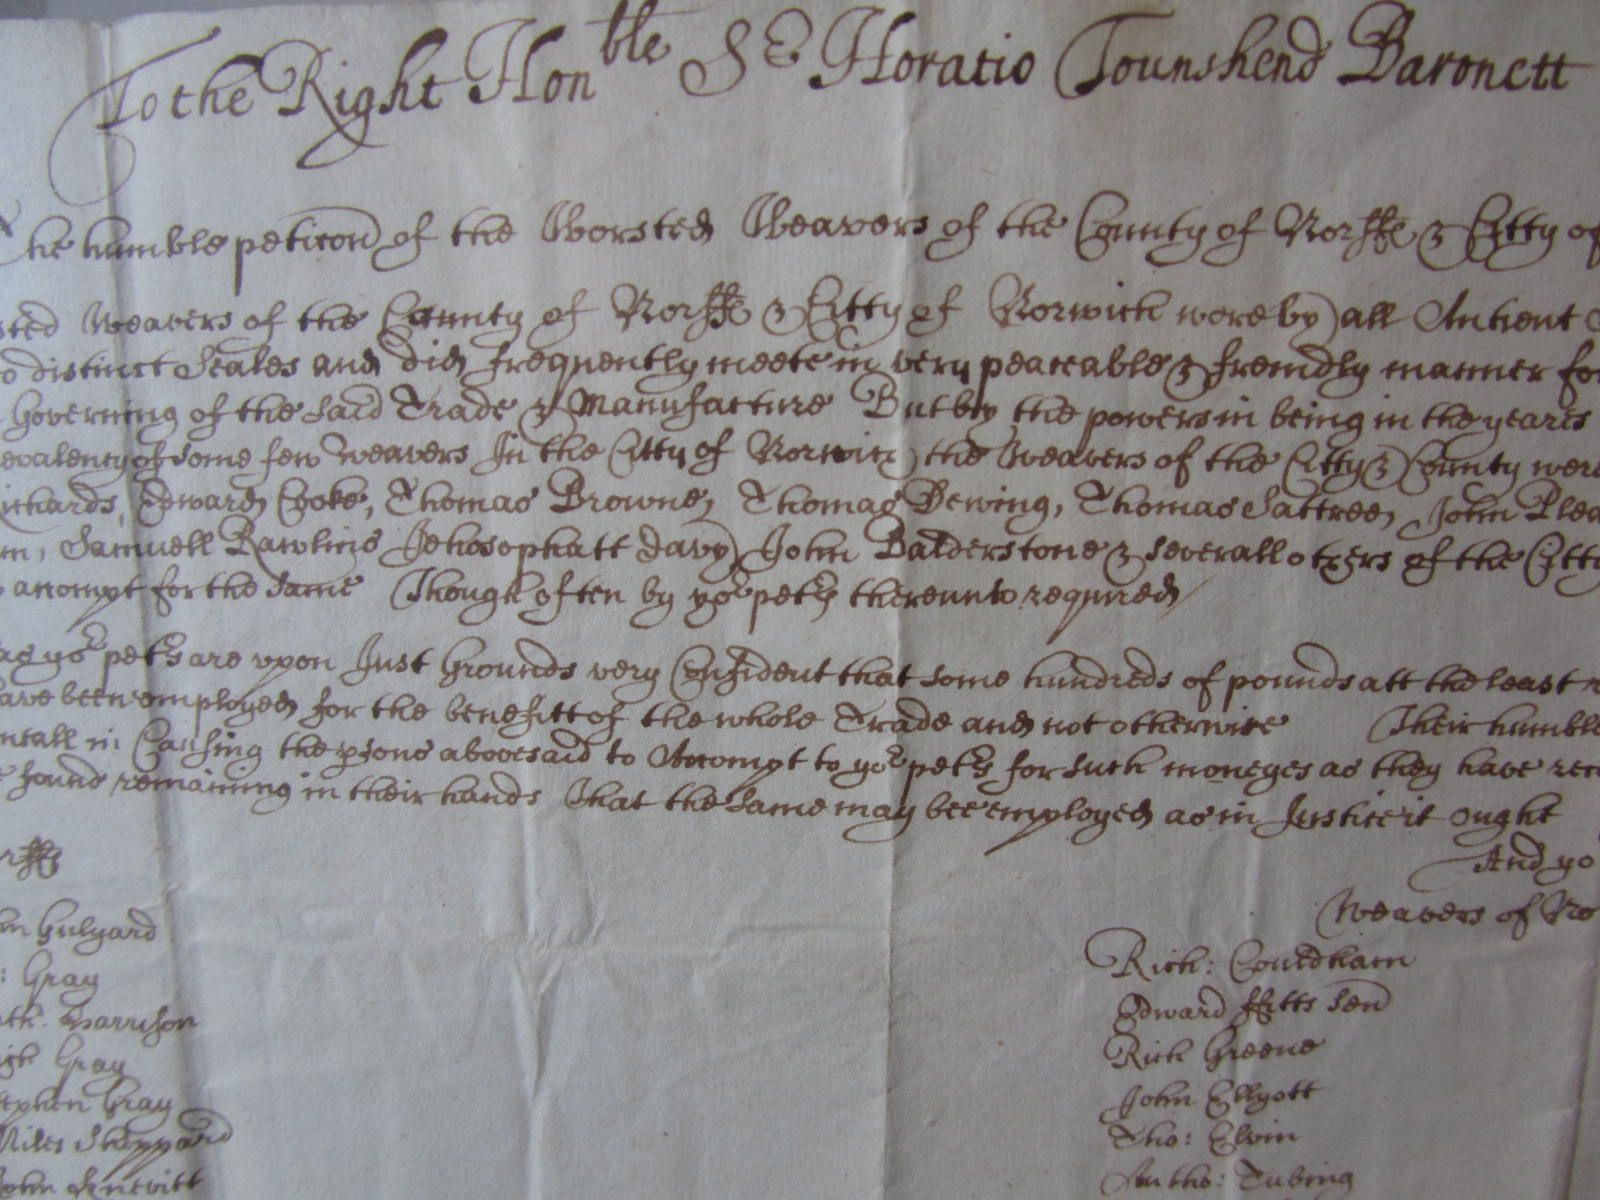 To the Right Hon ble Sr Horatio Tounshend Baronett
The humble peticon of the Worsted Weavers of the County of Norff & Citty of
sted Weavers of the County of Norff & Citty of Norwich were by all Antient
o distinct Seales and did frequently meete in very peaceable & freindly manner for
Governing of the said Trade & Manufacture But by the powers in being in the yeares
evalency of some few Weavers In the Citty of Norwich the Weavers of the Citty & County were
ichards, Edward Cooke, Thomas Browne, Thomas Dewing, Thomas Sattree, John Plea
m, Samuell Rawlins Jehosophatt Davy John Balderstone & severall others of the Citty
accompt for the same Though often by yor petrs thereunto required
as yor petrs are vpon Just Grounds very Confident that some hundreds of pounds att the least
ave been employed for the benefitt of the whole Trade and not otherwise Their humble
ntall in Causing the psons abovesaid to Accompt to yor petrs for such moneyes as they have rece
found remaining in their hands That the same may bee employed as in Justice it ought
And yo
rff
Weavers of No
n Gulyard
Rich: Couldham
: Gray
Edward ffitts Sen
th: Harrison
Rich Greene
ich Gray
John Ellyott
tephen Gray
Tho: Elvin
Miles Sheppard
Antho: Tubing
John Knevitt